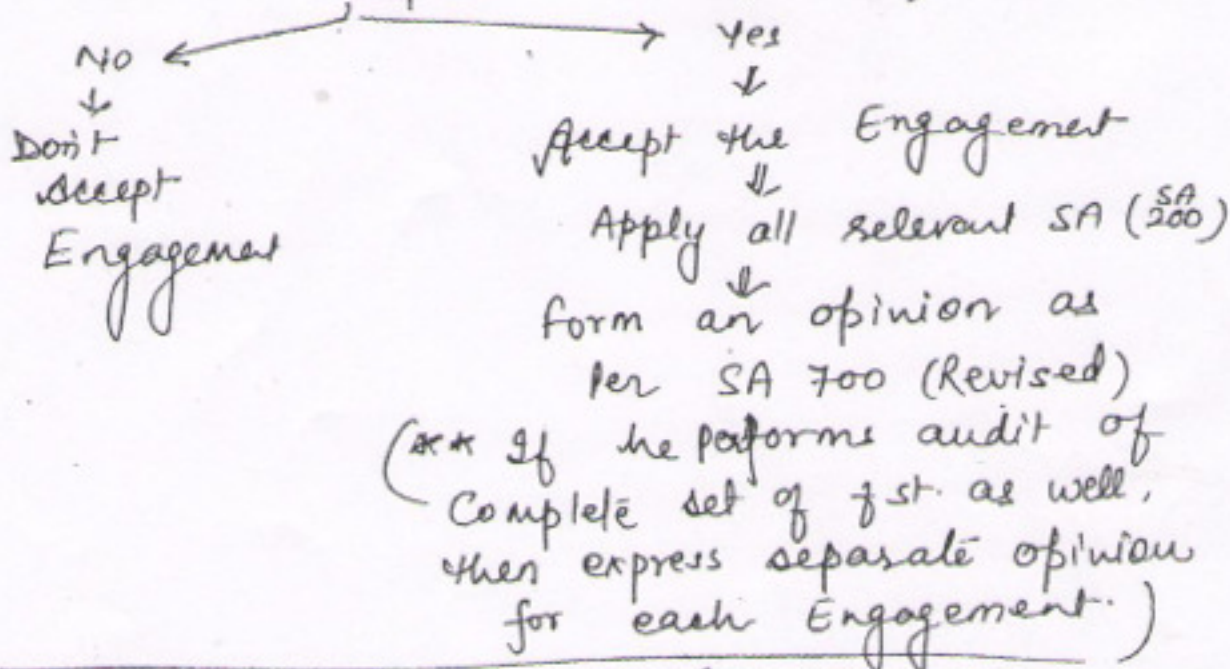 No
Yes
Don't
Accept
Engagement
Accept the Engagement
Apply all relevant SA (SA 200)
form an opinion as
per SA 700 (Revised)
(** If he performs audit of
Complete set of f st. as well,
then express separate opinion
for each Engagement.)